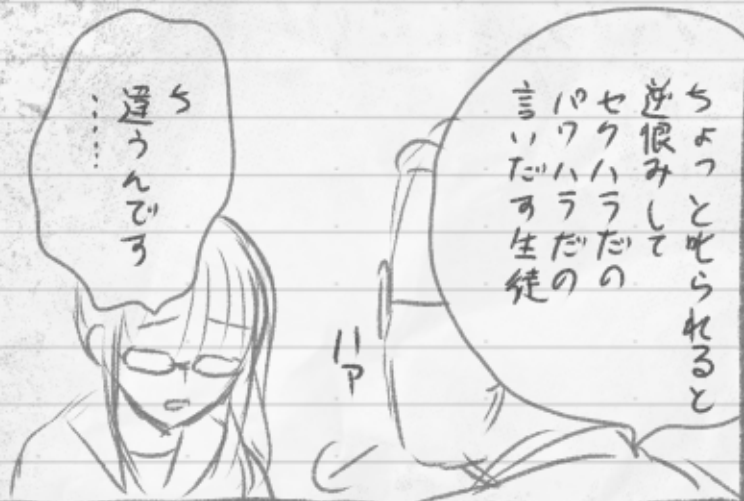 ちょっと叱られると
逆恨みして
セクハラだの
パワハラだの
言いだす生徒
ハァ
ち
違うんです
……